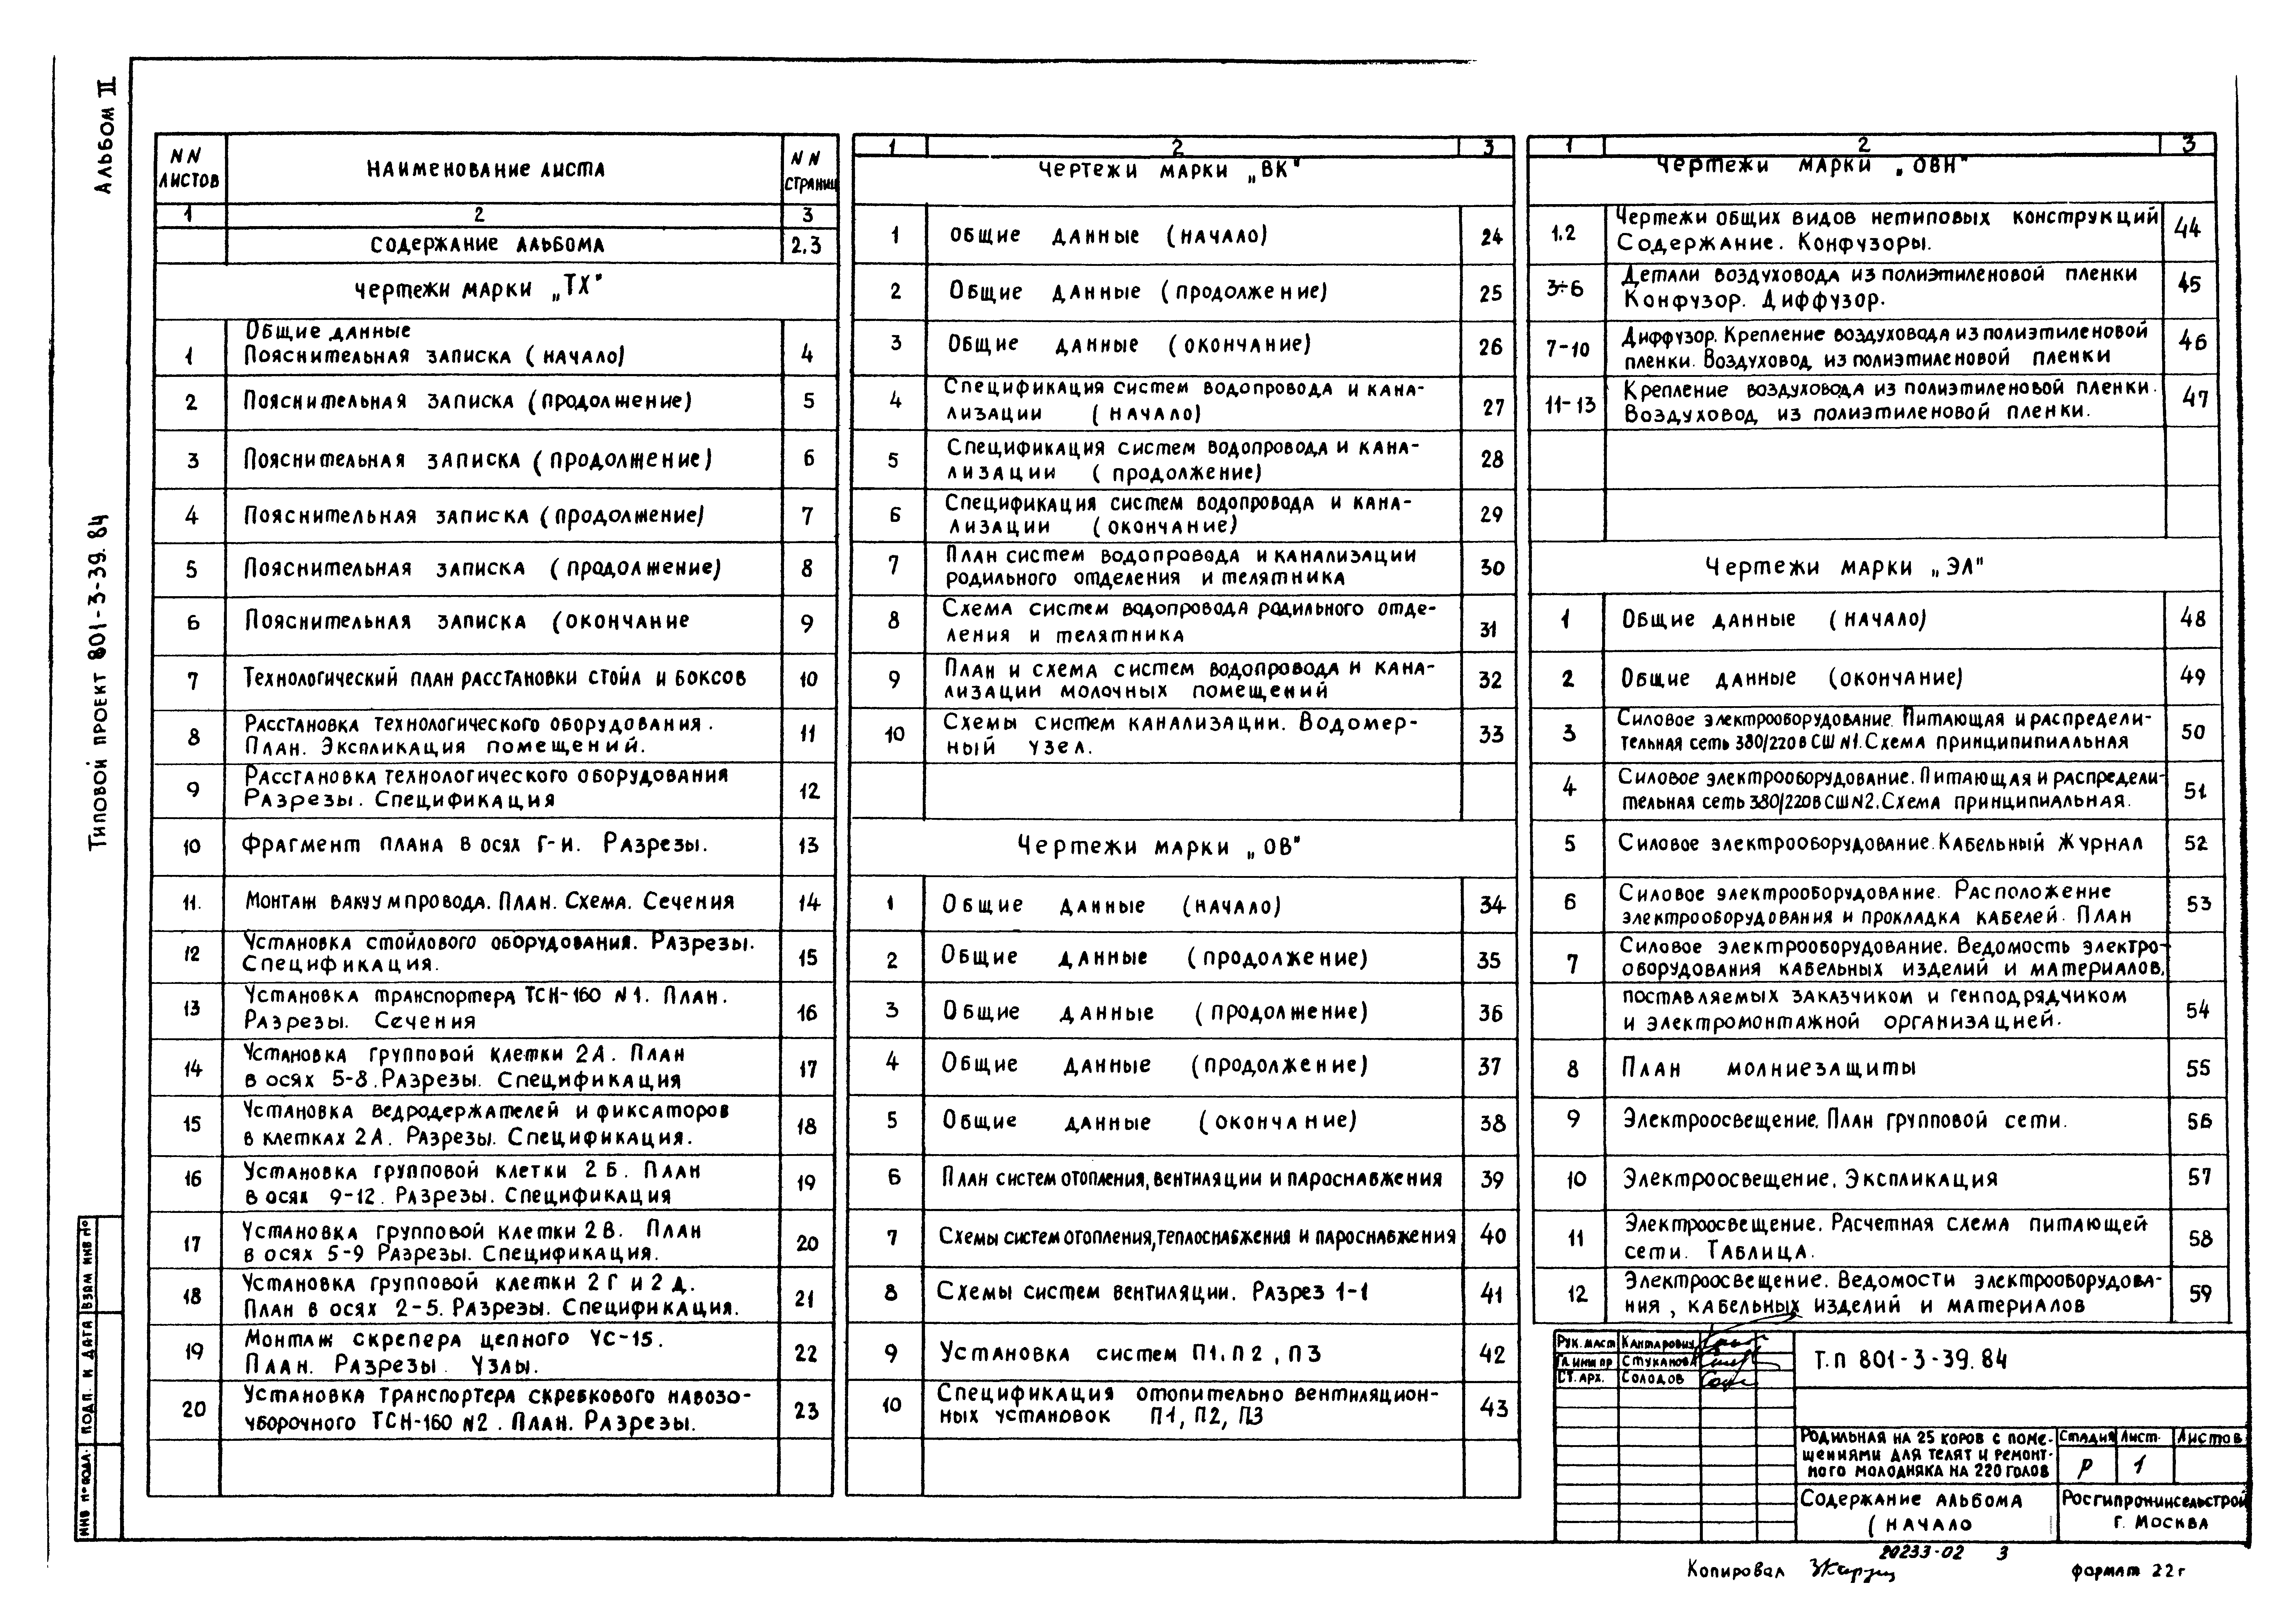 Альбом II
Типовой проект 801-3-39.84
NN листов | Наименование листа | NN страниц
1 | 2 | 3
Содержание альбома | 2.3
Чертежи марки „ТХ"
Общие данные
1 | Пояснительная записка (начало) | 4
2 | Пояснительная записка (продолжение) | 5
3 | Пояснительная записка (продолжение) | 6
4 | Пояснительная записка (продолжение) | 7
5 | Пояснительная записка (продолжение) | 8
6 | Пояснительная записка (окончание | 9
7 | Технологический план расстановки стойл и боксов | 10
8 | Расстановка технологического оборудования.
План. Экспликация помещений. | 11
9 | Расстановка технологического оборудования
Разрезы. Спецификация | 12
10 | Фрагмент плана в осях Г-И. Разрезы. | 13
11. | Монтаж вакуумпровода. План. Схема. Сечения | 14
12 | Установка стойлового оборудования. Разрезы.
Спецификация. | 15
13 | Установка транспортера ТСН-160 N1. План.
Разрезы. Сечения | 16
14 | Установка групповой клетки 2А. План
в осях 5-8. Разрезы. Спецификация | 17
15 | Установка ведродержателей и фиксаторов
в клетках 2А. Разрезы. Спецификация. | 18
16 | Установка групповой клетки 2Б. План
в осях 9-12. Разрезы. Спецификация | 19
17 | Установка групповой клетки 2В. План
в осях 5-9 Разрезы. Спецификация. | 20
18 | Установка групповой клетки 2Г и 2Д.
План в осях 2-5. Разрезы. Спецификация. | 21
19 | Монтаж скрепера цепного УС-15.
План. Разрезы. Узлы. | 22
20 | Установка транспортера скребкового навозо-
уборочного ТСН-160 N2. План. Разрезы. | 23
1 | 2 | 3
Чертежи марки „ВК"
1 | Общие данные (начало) | 24
2 | Общие данные (продолжение) | 25
3 | Общие данные (окончание) | 26
4 | Спецификация систем водопровода и кана-
лизации (начало) | 27
5 | Спецификация систем водопровода и кана-
лизации (продолжение) | 28
6 | Спецификация систем водопровода и кана-
лизации (окончание) | 29
7 | План систем водопровода и канализации
родильного отделения и телятника | 30
8 | Схема систем водопровода родильного отде-
ления и телятника | 31
9 | План и схема систем водопровода и кана-
лизации молочных помещений | 32
10 | Схемы систем канализации. Водомер-
ный узел. | 33
Чертежи марки „ОВ"
1 | Общие данные (начало) | 34
2 | Общие данные (продолжение) | 35
3 | Общие данные (продолжение) | 36
4 | Общие данные (продолжение) | 37
5 | Общие данные (окончание) | 38
6 | План систем отопления, вентиляции и пароснабжения | 39
7 | Схемы систем отопления, теплоснабжения и пароснабжения | 40
8 | Схемы систем вентиляции. Разрез 1-1 | 41
9 | Установка систем П1, П2, П3 | 42
10 | Спецификация отопительно вентиляцион-
ных установок П1, П2, П3 | 43
1 | 2 | 3
Чертежи марки „ОВН"
1.2 | Чертежи общих видов нетиповых конструкций
Содержание. Конфузоры. | 44
3÷6 | Детали воздуховода из полиэтиленовой пленки
Конфузор. Диффузор. | 45
7-10 | Диффузор. Крепление воздуховода из полиэтиленовой
пленки. Воздуховод из полиэтиленовой пленки | 46
11-13 | Крепление воздуховода из полиэтиленовой пленки.
Воздуховод из полиэтиленовой пленки. | 47
Чертежи марки „ЭЛ"
1 | Общие данные (начало) | 48
2 | Общие данные (окончание) | 49
3 | Силовое электрооборудование. Питающая и распредели-
тельная сеть 380/220в СШ N1. Схема принципипиальная | 50
4 | Силовое электрооборудование. Питающая и распредели-
тельная сеть 380/220в СШN2. Схема принципиальная. | 51
5 | Силовое электрооборудование. Кабельный журнал | 52
6 | Силовое электрооборудование. Расположение
электрооборудования и прокладка кабелей. План | 53
7 | Силовое электрооборудование. Ведомость электро-
оборудования кабельных изделий и материалов,
поставляемых заказчиком и генподрядчиком
и электромонтажной организацией. | 54
8 | План молниезащиты | 55
9 | Электроосвещение. План групповой сети. | 56
10 | Электроосвещение. Экспликация | 57
11 | Электроосвещение. Расчетная схема питающей
сети. Таблица. | 58
12 | Электроосвещение. Ведомости электрооборудова-
ния, кабельных изделий и материалов | 59
Рук. маст | Кантарович
Гл. инж пр | Стуканова
Ст. арх. | Солодов
Т.п 801-3-39.84
Родильная на 25 коров с поме-
щениями для телят и ремонт-
ного молодняка на 220 голов
Стадия | Лист | Листов
Р | 1
Содержание альбома
(начало
Росгипрониисельстрой
г. Москва
20233-02 3
Копировал
формат 22г
Инв № подл. | Подп. и дата | Взам инв №